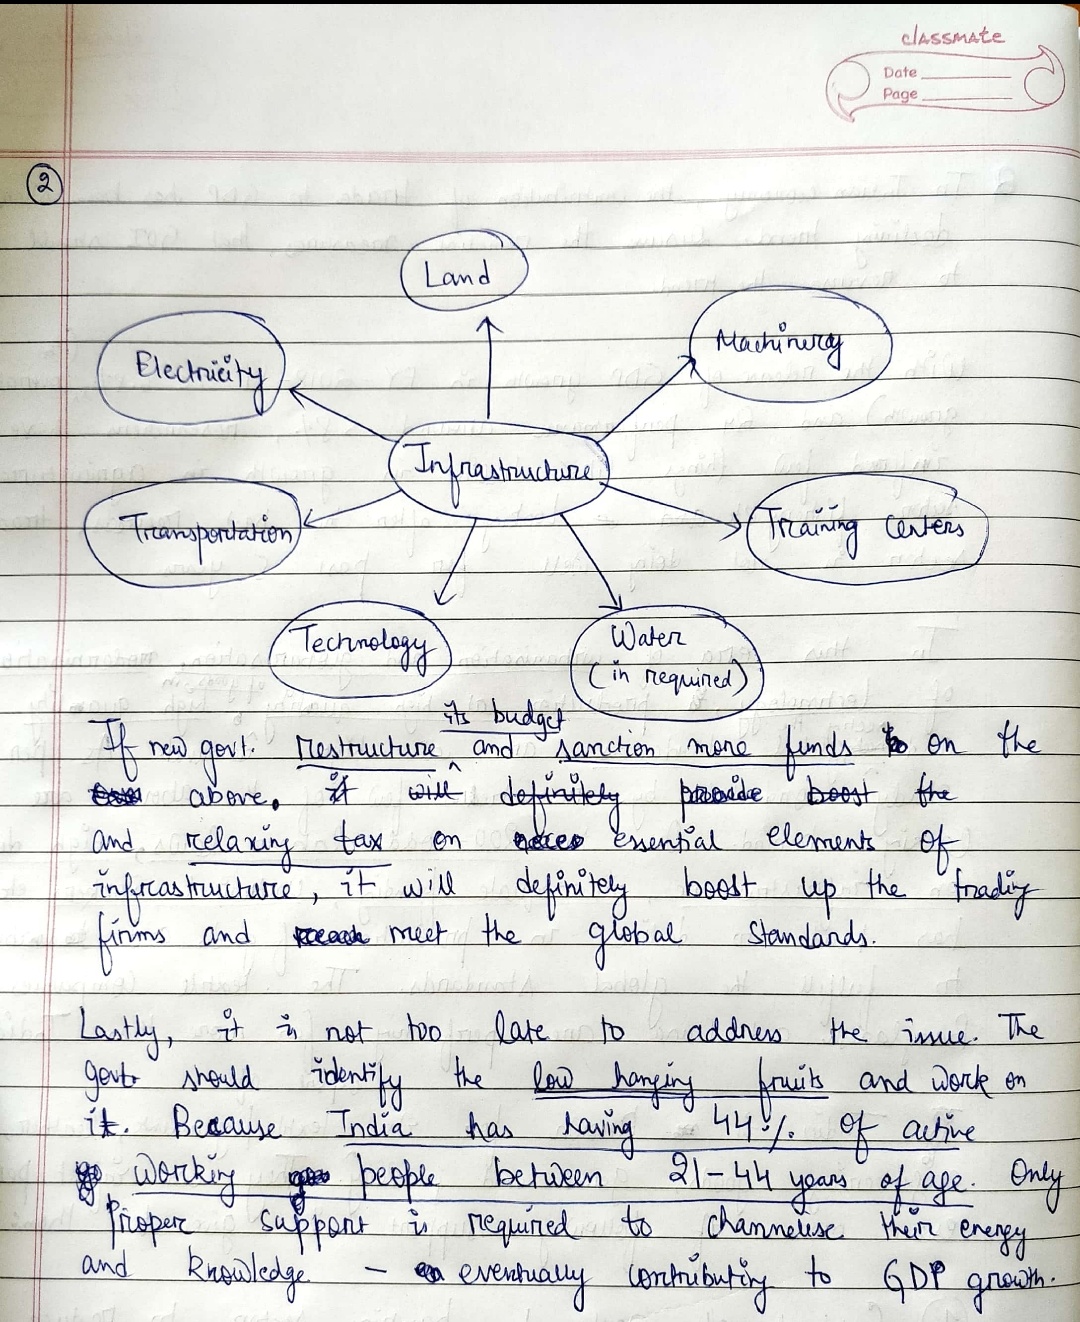 classmate
Date
Page
2
Land
Electricity
Machinery
Infrastructure
Transportation
Training Centers
Technology
Water
(in required)
its budget
If new govt. restructure ^ and sanction more funds on the
above. it will definitely provide boost the
and relaxing tax on essential elements of
infrastructure, it will definitely boost up the trading
firms and meet the global standards.
Lastly, it is not too late to address the issue. The
govt. should identify the low hanging fruits and work on
it. Because India has having 44% of active
working people between 21-44 years of age. Only
proper support is required to channelise their energy
and knowledge - eventually contributing to GDP growth.